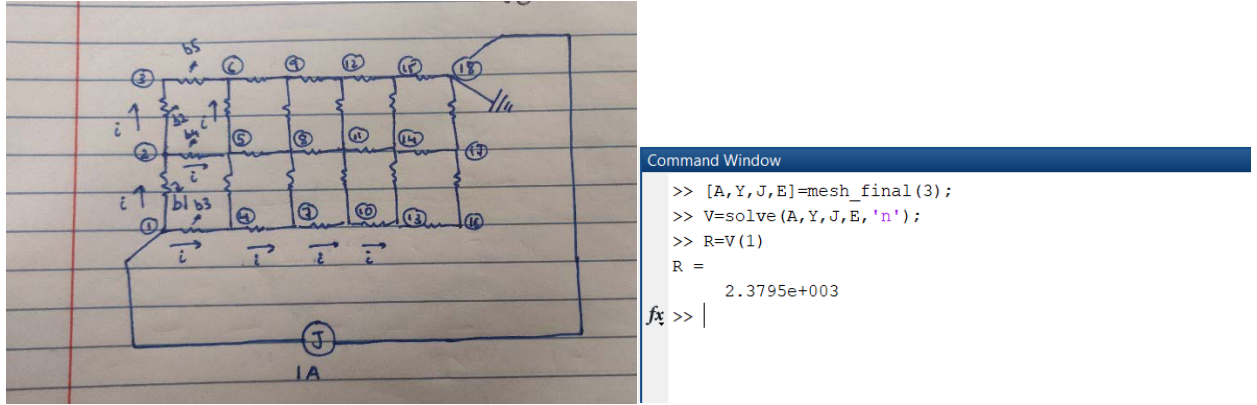 b5
3 6 9 12 15 18
i b2 i
b4
2 5 8 11 14 17
i
i b1 b3
1 4 7 10 13 16
i i i i
J
1A
Command Window
>> [A,Y,J,E]=mesh_final(3);
>> V=solve(A,Y,J,E,'n');
>> R=V(1)
R =
2.3795e+003
fx >>